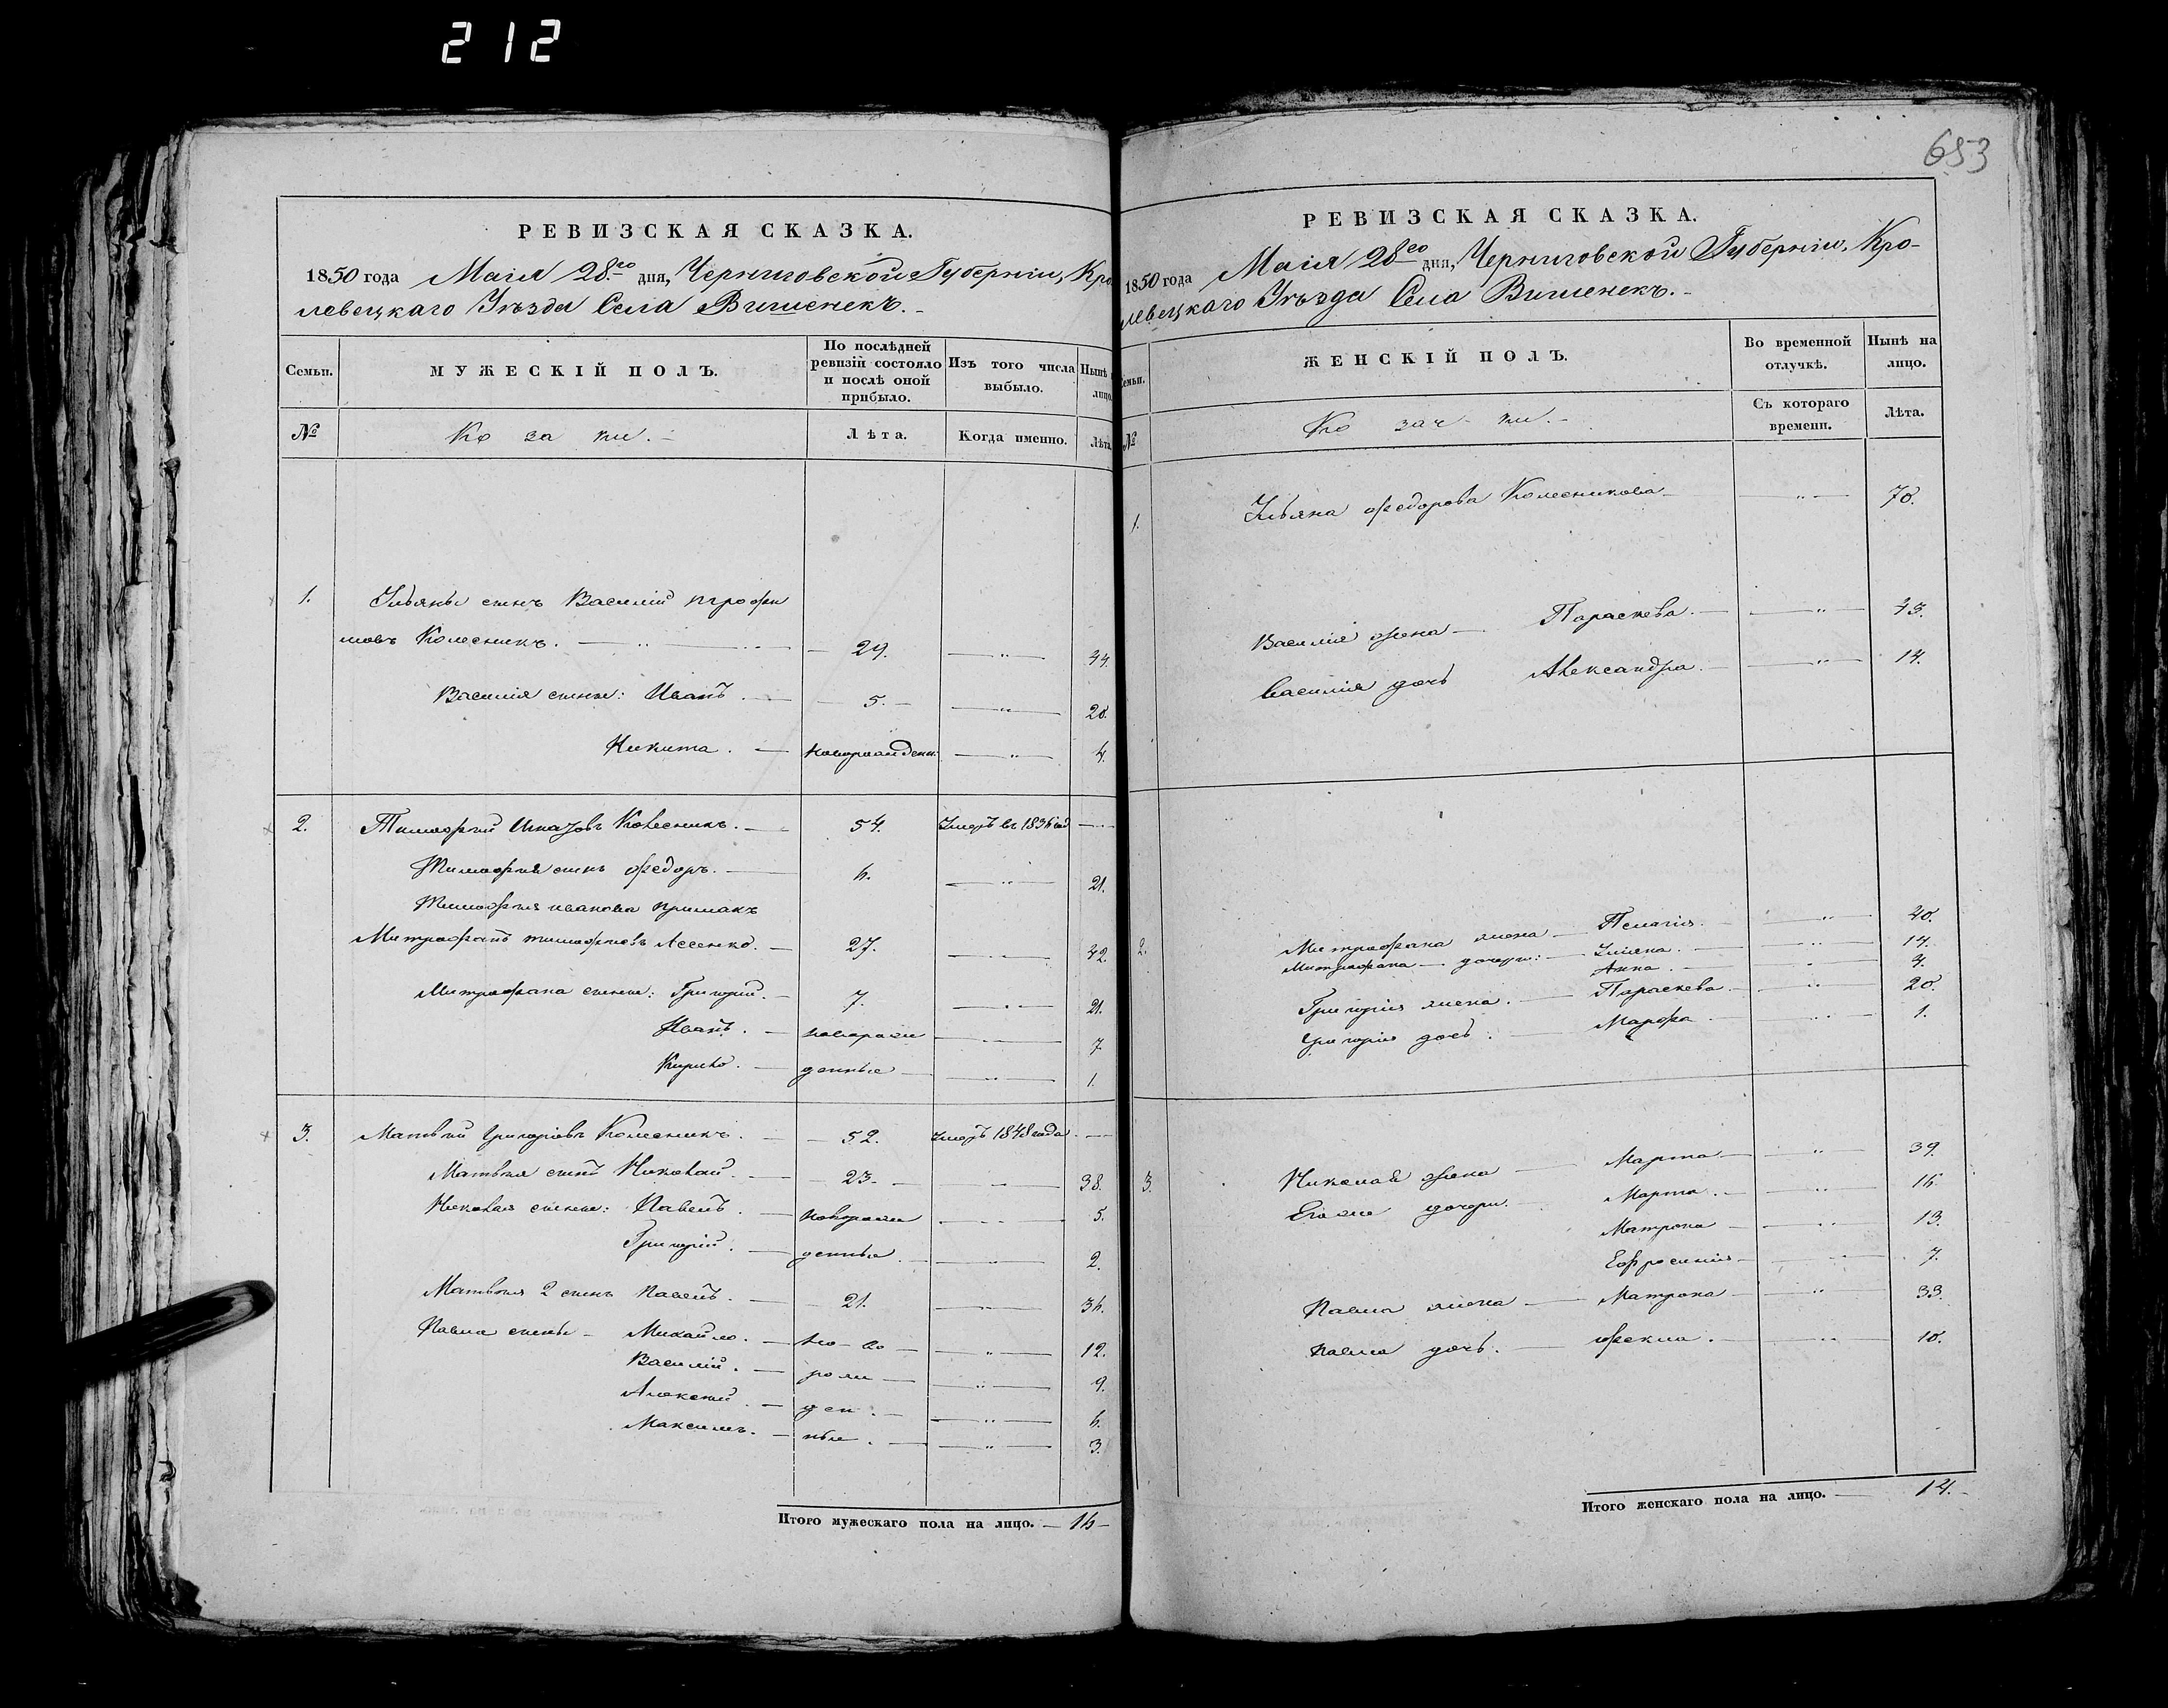 212
653
РЕВИЗСКАЯ СКАЗКА.
1850 года Маія 28го дня, Черниговской Губерніи, Кро
левецкаго Уѣзда Села Вишенекъ.
Семьи.
МУЖЕСКІЙ ПОЛЪ.
По послѣдней ревизій состояло и послѣ оной прибыло.
Изъ того числа выбыло.
Нынѣ лицо.
№
Ко за ки.
Лѣта.
Когда именно.
Лѣта
1. Ульяны сынъ Василій трофи
мовъ Колесникъ. 29. " 44.
Василія сыны: Иванъ. 5. " 20.
Никита. новорожден: " 4.
2. Тимофей Колесникъ. 54. Умеръ въ 1836 год
Тимофея сынъ Федоръ. 6. " 21.
Тимофея иванова примакъ
Митрофанъ тимофеевъ 27. " 42.
Митрофана сыны: Григорій. 7. " 21.
Иванъ. новорож " 7
Кирило. денные " 1.
3. Матвей григоріевъ Колесникъ. 52. Умеръ 1848 года
Матвея сынъ Николай. 23. " 38.
Николая сыны: Павелъ. новорож " 5.
Григорій. денные " 2.
Матвея 2 сынъ Павелъ. 21. " 36.
Павла сыны Михайло. но во " 12.
Василій. рож " 9.
Алексей. ден " 6.
Максимъ. ные. " 3.
Итого мужескаго пола на лицо. 16
РЕВИЗСКАЯ СКАЗКА.
1850 года Маія 28го дня, Черниговской Губерніи, Кро-
левецкаго Уѣзда Села Вишенекъ.
Семьи.
ЖЕНСКІЙ ПОЛЪ.
Во временной отлучкѣ.
Нынѣ на лицо.
№
Ко зач ки.
Съ котораго времени.
Лѣта.
1. Ульяна федорова Колесникова " 70.
Василія жена Параскева. " 43.
Василія дочь Александра. " 14.
2. Митрофана жена Пелагія. " 40.
Митрофана дочери: Ульяна. " 14.
Анна. " 4.
Григорія жена. Параскева. " 20.
Григорія дочь. Марфа. " 1.
3. Николая жена Марта " 39.
Егоже дочери. Марта. " 16.
Матрона " 13.
Ефросинія " 7.
Павла жена Матрона " 33.
Павла дочь. фекла. " 10.
Итого женскаго пола на лицо. 14.